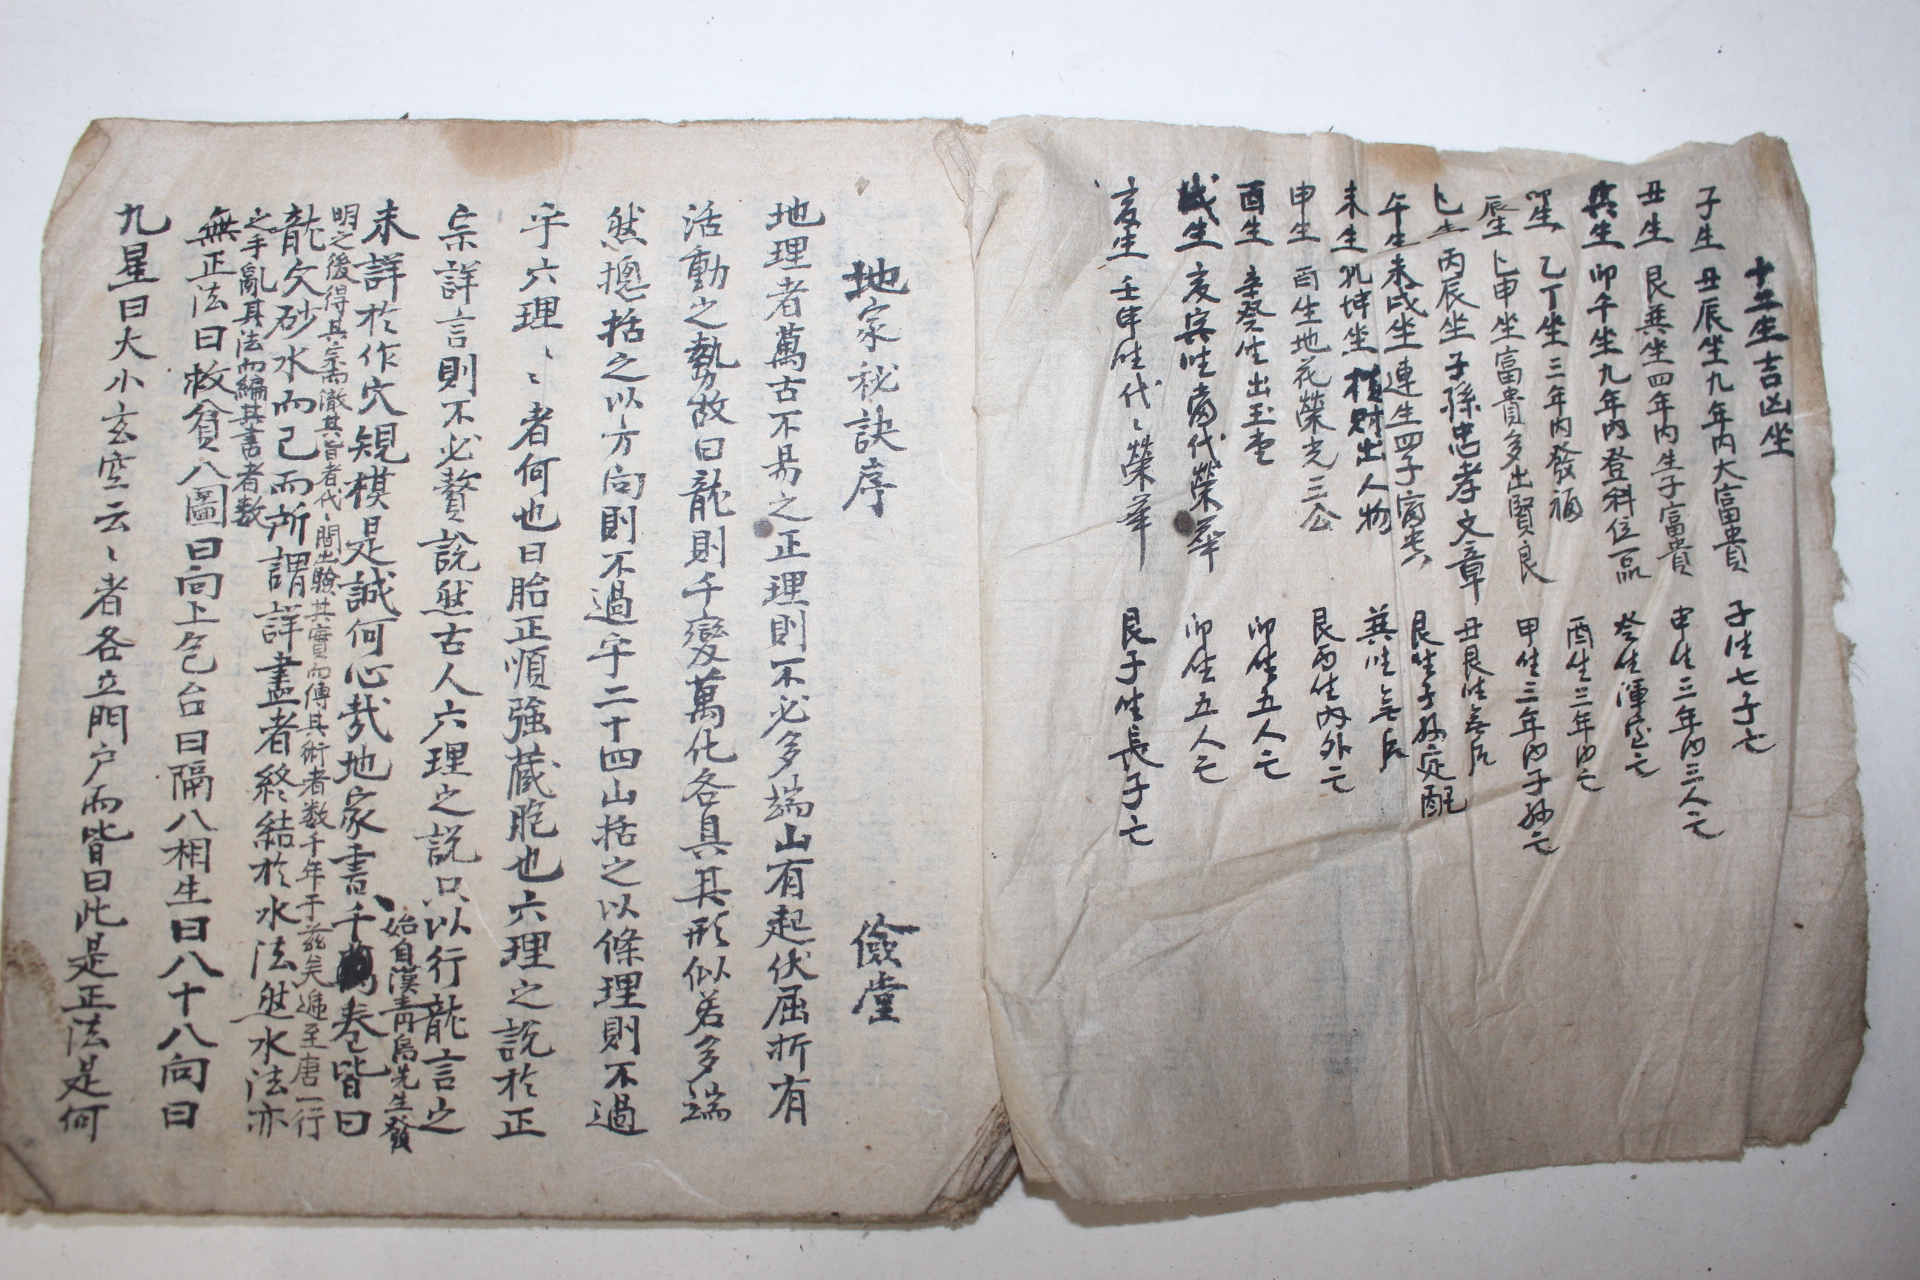 十二生吉凶坐
子生 丑辰坐九年內大富貴 子生七子亡
丑生 艮巽坐四年內生子富貴 申生三年內三人亡
寅生 卯午坐九年內登科位一品 癸生渾家亡
卯生 乙丁坐三年內發福 酉生三年內亡
辰生 巳申坐富貴多出賢良 甲生三年內子孫亡
巳生 丙辰坐子孫忠孝文章 丑艮生無后
午生 未戌坐連生四子富貴 艮生子孫定配
未生 乾坤坐積財出人物 巽生無后
申生 酉生地花榮光三公 艮丙生內外亡
酉生 辛癸生出玉堂 卯生五人亡
戌生 亥寅生當代榮華 卯生五人亡
亥生 壬申生代〻榮華 艮子生長子亡
地家秘訣序 儉堂
地理者萬古不易之正理則不必多端山有起伏屈折有
活動之勢故曰龍則千變萬化各具其形似若多端
然摠括之以方向則不過乎二十四山括之以條理則不過
乎六理〻〻者何也曰胎正順強藏胞也六理之說於正
宗詳言則不必贅說然古人六理之說只以行龍言之
未詳於作穴規模是誠何心哉地家書千萬卷皆曰
始自漢靑烏先生發
明之後得其宗而徹其旨者代〻間出驗其實而傳其術者数千年于玆矣逓至唐一行
之手亂其法而編其書者数
龍穴砂水而已而所謂詳盡者終結於水法然水法亦
無正法曰救貧八圖曰向上乞台曰隔八相生曰八十八向曰
九星曰大小玄空云〻者各立門戶而皆曰此是正法是何